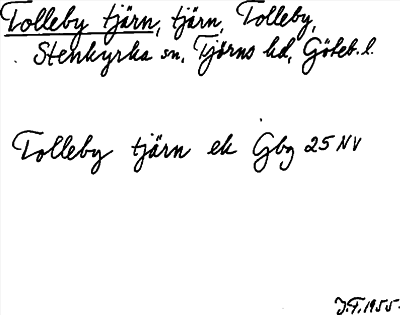 Tolleby tjärn, tjärn, Tolleby,
Stenkyrka sn, Tjörns hd, Göteb. l.
Tolleby tjärn ek Gbg 25 NV
J.F. 1955.